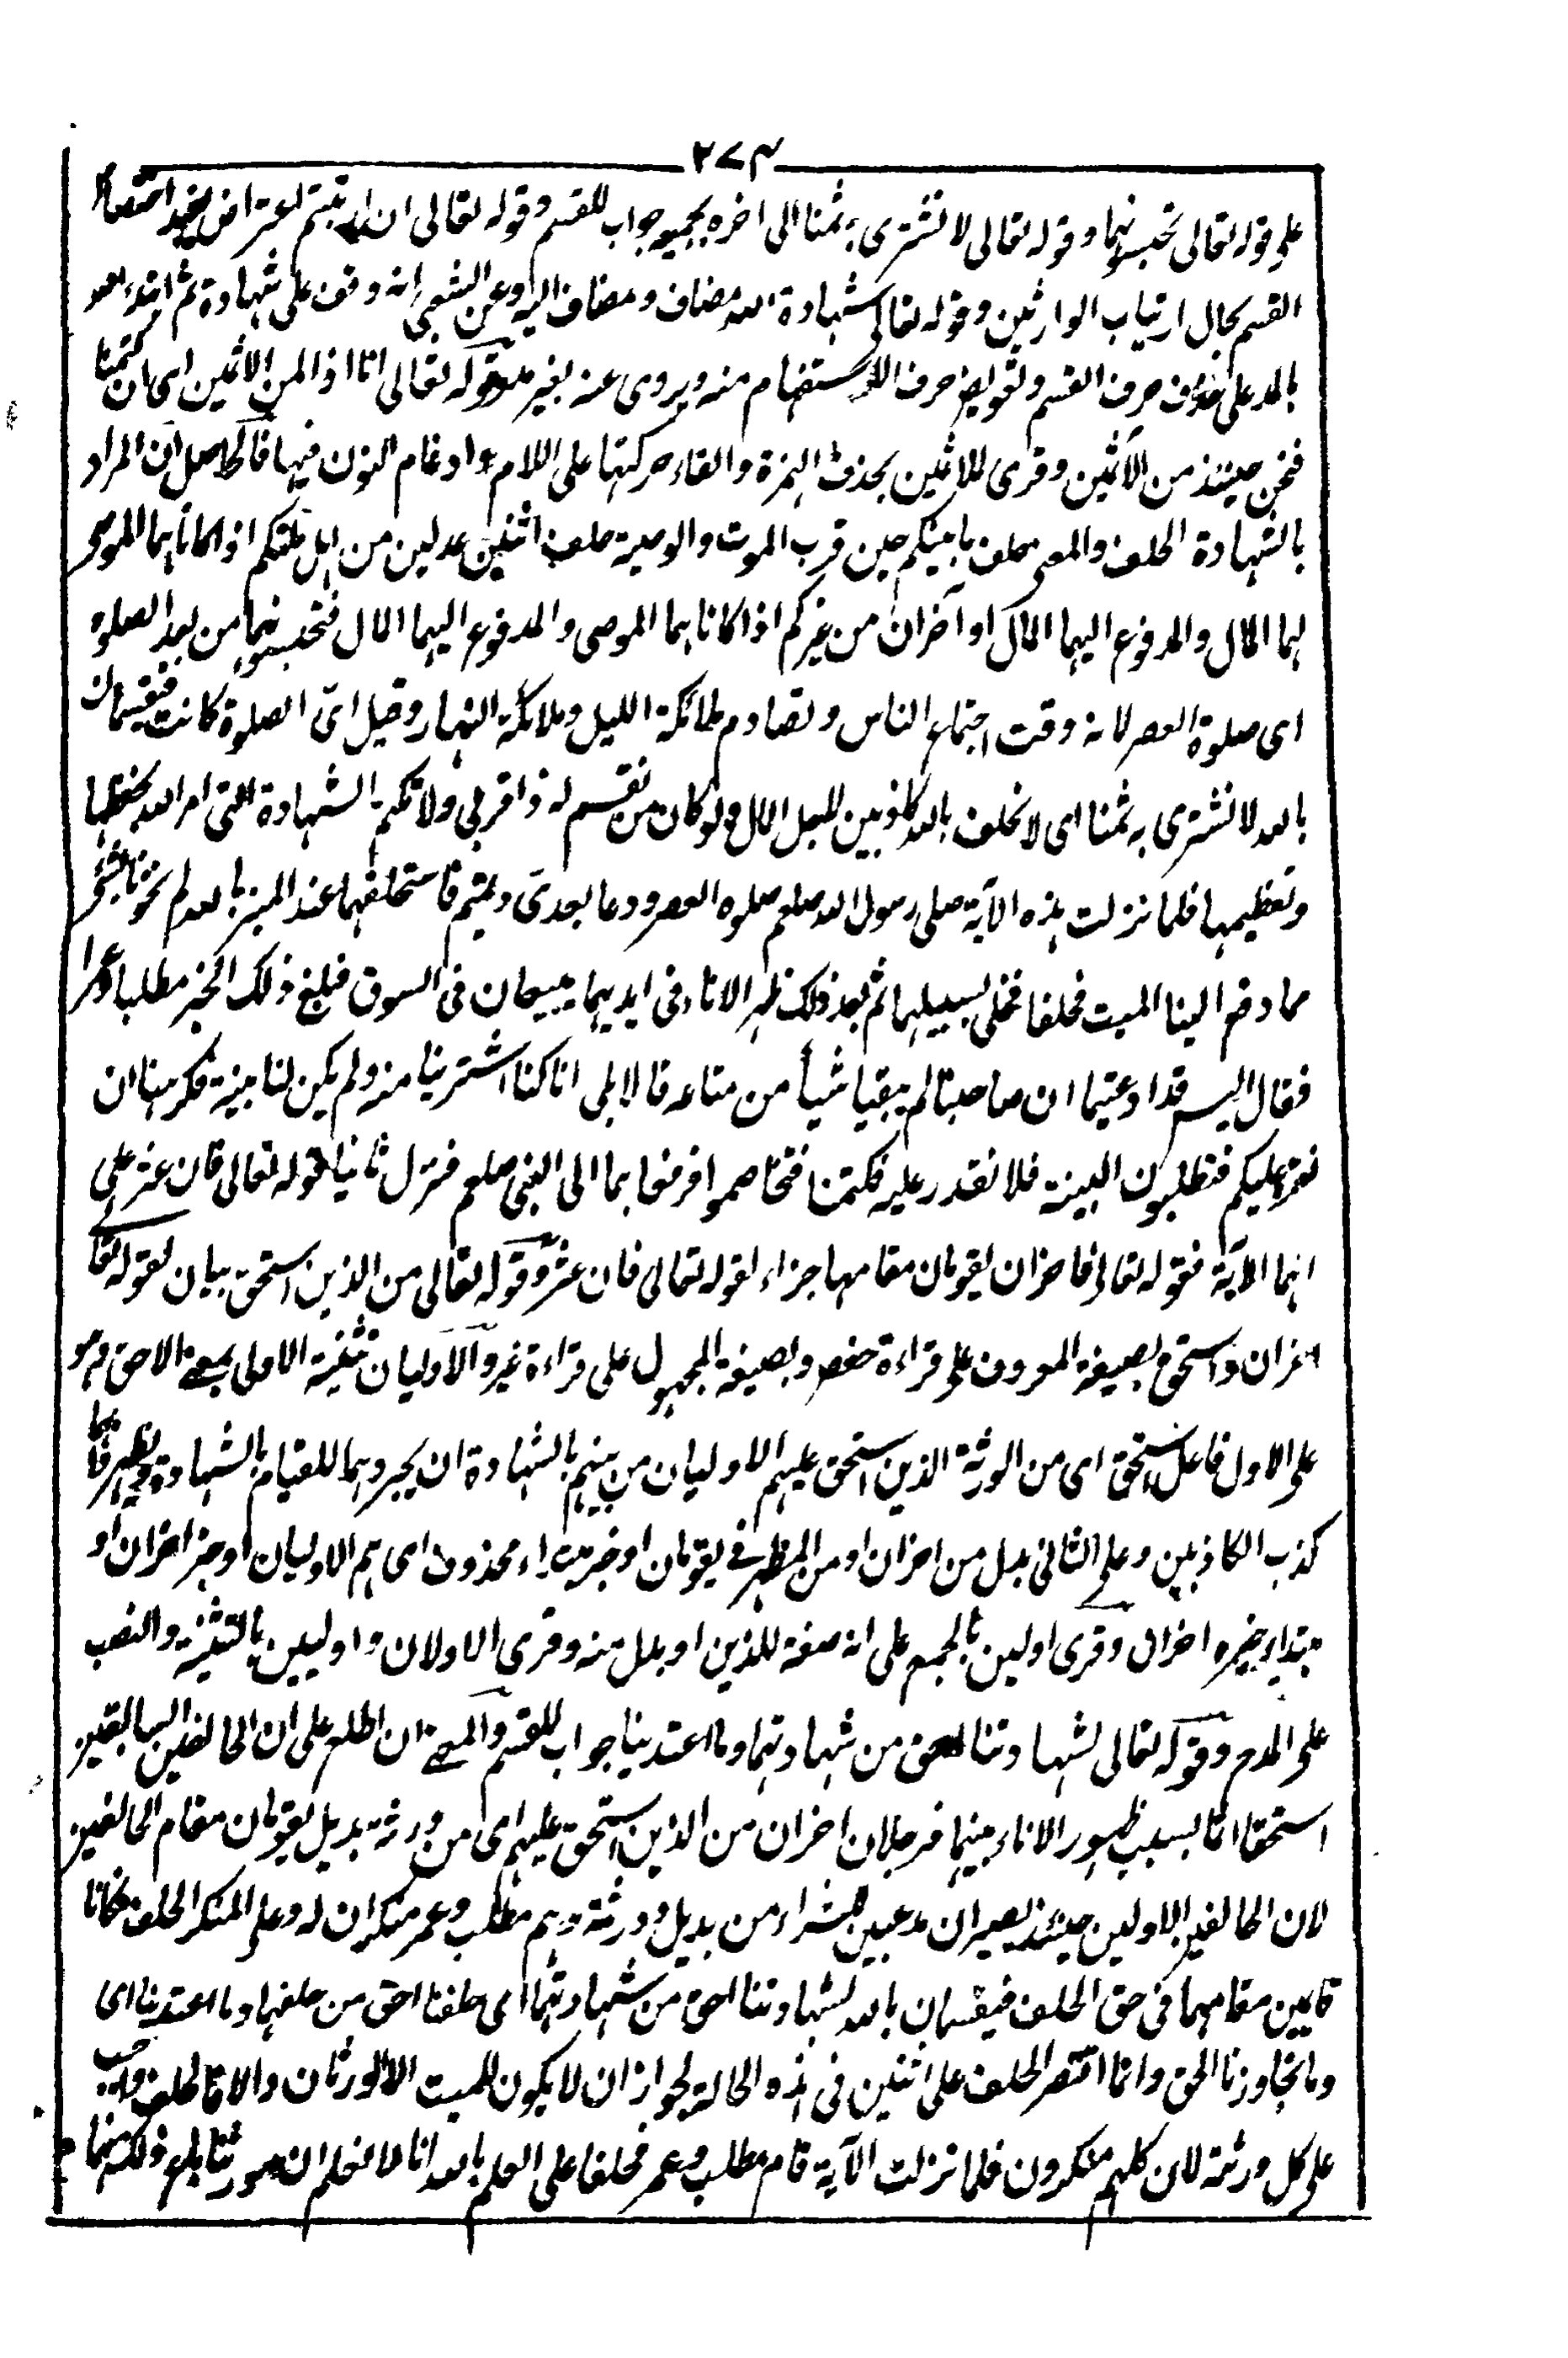 ٢٧٣
على قوله تعالى تحبسونهما وقوله تعالى لا نشترى به ثمنا الى اخره بجميعه جواب للقسم وقوله تعالى ان ارتبتم اعتراض يفيد اختصاص
القسم بحال ارتياب الوارثين وقوله تعالى شهادة الله مضاف ومضاف اليه وعن الشعبى انه وقف على شهادة ثم ابتدء الله
بالمد على حذف حرف القسم وتعويض حرف الاستفهام منه ويروى عنه بغير مد وقوله تعالى انا اذا لمن الاثمين اى ان كتمنا
فنحن حينئذ من الآثمين وقرى لملاثمين بحذف الهمزة والقاء حركتها على اللام وادغام النون فيها فالحاصل ان المراد
بالشهادة الحلف والمعنى حلف ما بينكم حين قرب الموت والوصية حلف اثنين عدلين من اهل ملتكم اذا كانا هما الموصى
لهما المال والمدفوع اليهما المال او آخران من غيركم اذا كانا هما الموصى والمدفوع اليهما المال فتحبسونهما من بعد الصلوة
اى صلوة العصر لانه وقت اجتماع الناس وتصادم ملائكة الليل وملائكة النهار وقيل اىّ الصلوة كانت فيقسمان
بالله لا نشترى به ثمنا اى لا نحلف بالله كاذبين لاجل المال ولو كان من نقسم له ذا قربى ولا نكتم الشهادة التى امر الله بحفظها
وتعظيمها فلما نزلت هذه الآية صلى رسول الله صلعم صلوه العصر ودعا بعدىّ وتميم فاستحلفهما عند المنبر بالله لم نخونا بشئ
مما دفع الينا الميت فحلفا فخلى سبيلهما ثم بعد ذلك ظهر الاناء فى ايديهما يبيعان فى السوق فبلغ ذلك الخبر مطلبا وعمرا
فقال اليس قد ادعيتما ان صاحبنا لم يبقيا شيأ من متاعه قالا بلى انا كنا اشترينا منه ولم يكن لنا بينة فكرهنا ان
نقر عليكم فتطلبون البينة فلا نقدر عليه فكتمنا فتخاصموا فرفعا بما الى النبى صلعم فنزل ثانيا قوله تعالى فان عثر على
انهما الآية فقوله تعالى فاخران يقومان مقامهما جزاء لقوله تعالى فان عثر وقوله تعالى من الذين استحق بيان لقوله تعالى
اخران واستحق بصيغة المعروف على قراءة حفص وبصيغة المجهول على قراءة غيره والاوليان تثنية الاولى بمعنى الاحق وهو
على الاول فاعل استحق اى من الورثة الذين استحق عليهم الاوليان من بينهم بالشهادة ان يجردوهما للقيام بالشهادة ويظهر بهما
كذب الكاذبين وعلى الثانى بدل من اخران او من المظهر فى يقومان او خبر مبتداء محذوف اى هم الاوليان او خبر اخران او
مبتداء وخبره اخران وقرى اولين بالجمع على انه صفة للذين او بدل منه وقرى الاولان واوليين بالتثنية والنصب
على المدح وقوله تعالى لشهادتنا احق من شهادتهما وما اعتدينا جواب للقسم والمعنى ان اطلع على ان الحالفين السابقين
استحقا اثما بسبب ظهور الاناء بينهما فرجلان اخران من الذين استحق عليهم اى من ورثة بديل يقومان مقام الحالفين
لان الحالفين الاولين حينئذ يصيران مدعيين للشراء من بديل وورثة وهم مطلب وعمر منكران له وعلى المنكر الحلف فكانا
قايمين مقامهما فى حق الحلف فيقسمان بالله لشهادتنا احق من شهادتهما اى حلفنا احق من حلفهما وما اعتدينا اى
وما تجاوزنا الحق وانما اقتصر الحلف على اثنين فى هذه الحالة لجواز ان لا يكون للميت الا الورثان والا فالحلف واجب
على كل ورثة لان كلهم منكرون فلما نزلت الآية قام مطلب وعمر فحلفا على العلم بالله انا لا نعلم ان مورثنا باع ذلك منهما